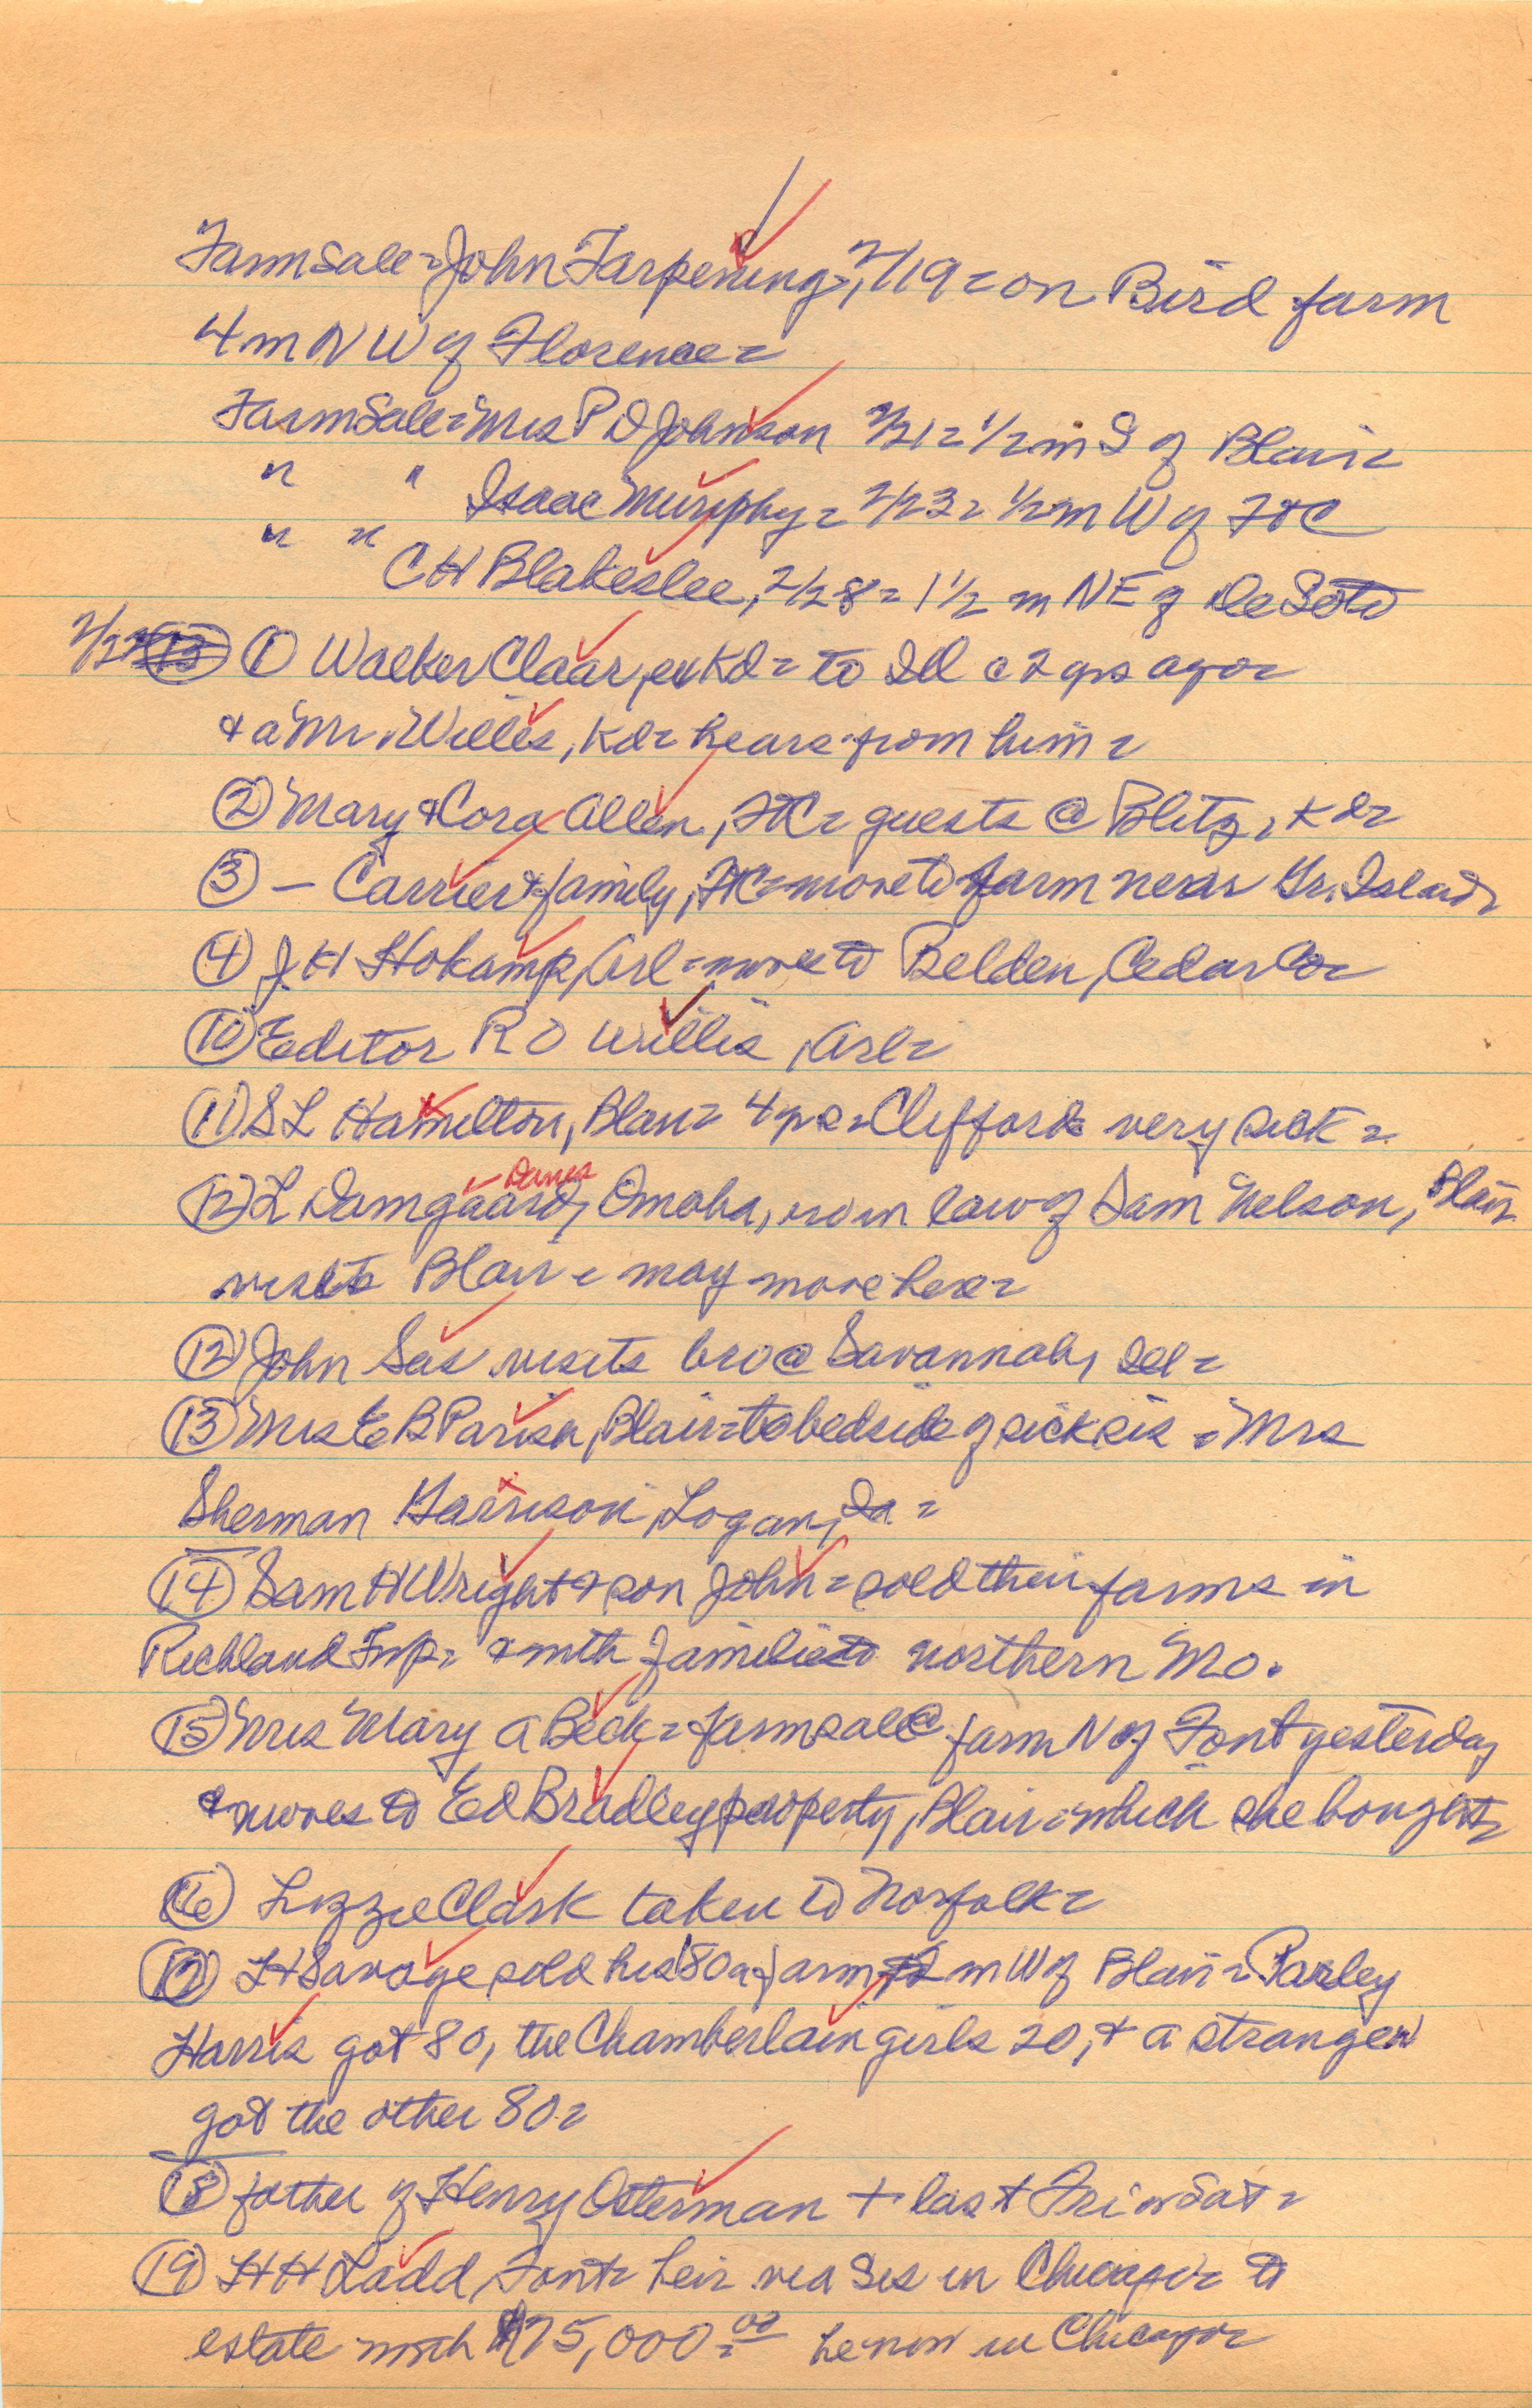 Farm Sale = John Tarpening, 2/19 = on Bird farm
4 m N W of Florence =
Farm Sale = Mrs P D Johnson 2/21 = 1/2 m S of Blair =
" " Isaac Murphy = 2/23 = 1/2 m W of FtC
" " C H Blakeslee, 2/28 = 1 1/2 m NE of De Soto
2/22 ① Walker Claar, ex Kd = to Ill c 2 yrs ago =
& a Mr. Willis, Kd = hears from him =
② Mary & Cora Allen, FtC = guests @ Blitz, Kd =
③ — Carrier & family, FtC = move to farm near Gr. Island =
④ J H Hokamp, Arl = moves to Belden, Cedar Co =
⑩ Editor R O Willis, Arl =
⑪ S L Hamilton, Blair = 4 yr s = Clifford = very sick =
⑫ L Damgaard, Danes Omaha, bro in law of Sam Nelson, Blair
visits Blair = may move here =
⑫ John Sas visits bro @ Savannah, Ill =
⑬ Mrs E B Parish, Blair = to bedside of sick sis = Mrs
Sherman Harrison, Logan, Ia =
⑭ Sam H Wright & son John = sold their farms in
Richland Twp = & with families to northern Mo.
⑮ Mrs Mary A Beck = farm sale @ farm N of Font yesterday
& moves to Ed Bradley property, Blair = which she bought =
⑯ Lizzie Clark taken to Norfolk =
⑰ L H Savage sold his 180 a farm 2 m W of Blair = Parley
Harris got 80, the Chamberlain girls 20, & a stranger
got the other 80 =
⑱ father of Henry Osterman + last Fri or Sat =
⑲ H H Ladd, Font = heir via sis in Chicago = to
estate worth $75,000.00 = he now in Chicago =